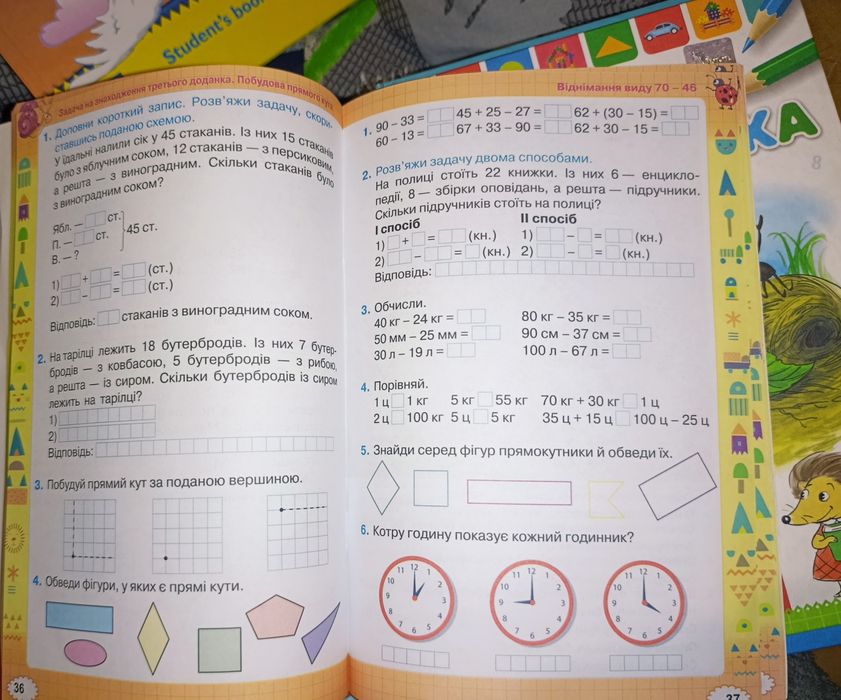 Student's boo
КА
8
Задача на знаходження третього доданка. Побудова прямого кута
1. Доповни короткий запис. Розв'яжи задачу, скори-
ставшись поданою схемою.
У їдальні налили сік у 45 стаканів. Із них 15 стаканів
було з яблучним соком, 12 стаканів — з персиковим,
а решта — з виноградним. Скільки стаканів було
з виноградним соком?
Ябл. — ст.
П. — ст. 45 ст.
В. — ?
1) + = (ст.)
2) − = (ст.)
Відповідь: стаканів з виноградним соком.
2. На тарілці лежить 18 бутербродів. Із них 7 бутер-
бродів — з ковбасою, 5 бутербродів — з рибою,
а решта — із сиром. Скільки бутербродів із сиром
лежить на тарілці?
1)
2)
Відповідь:
3. Побудуй прямий кут за поданою вершиною.
4. Обведи фігури, у яких є прямі кути.
36
Віднімання виду 70 – 46
1. 90 – 33 = 45 + 25 – 27 = 62 + (30 – 15) =
60 – 13 = 67 + 33 – 90 = 62 + 30 – 15 =
2. Розв'яжи задачу двома способами.
На полиці стоїть 22 книжки. Із них 6 — енцикло-
педії, 8 — збірки оповідань, а решта — підручники.
Скільки підручників стоїть на полиці?
І спосіб ІІ спосіб
1) + = (кн.) 1) – = (кн.)
2) – = (кн.) 2) – = (кн.)
Відповідь:
3. Обчисли.
40 кг – 24 кг = 80 кг – 35 кг =
50 мм – 25 мм = 90 см – 37 см =
30 л – 19 л = 100 л – 67 л =
4. Порівняй.
1 ц 1 кг 5 кг 55 кг 70 кг + 30 кг 1 ц
2 ц 100 кг 5 ц 5 кг 35 ц + 15 ц 100 ц – 25 ц
5. Знайди серед фігур прямокутники й обведи їх.
6. Котру годину показує кожний годинник?
11 12 1
10 2
9 3
8 4
7 6 5
11 12 1
10 2
9 3
8 4
7 6 5
11 12 1
10 2
9 3
8 4
7 6 5
37